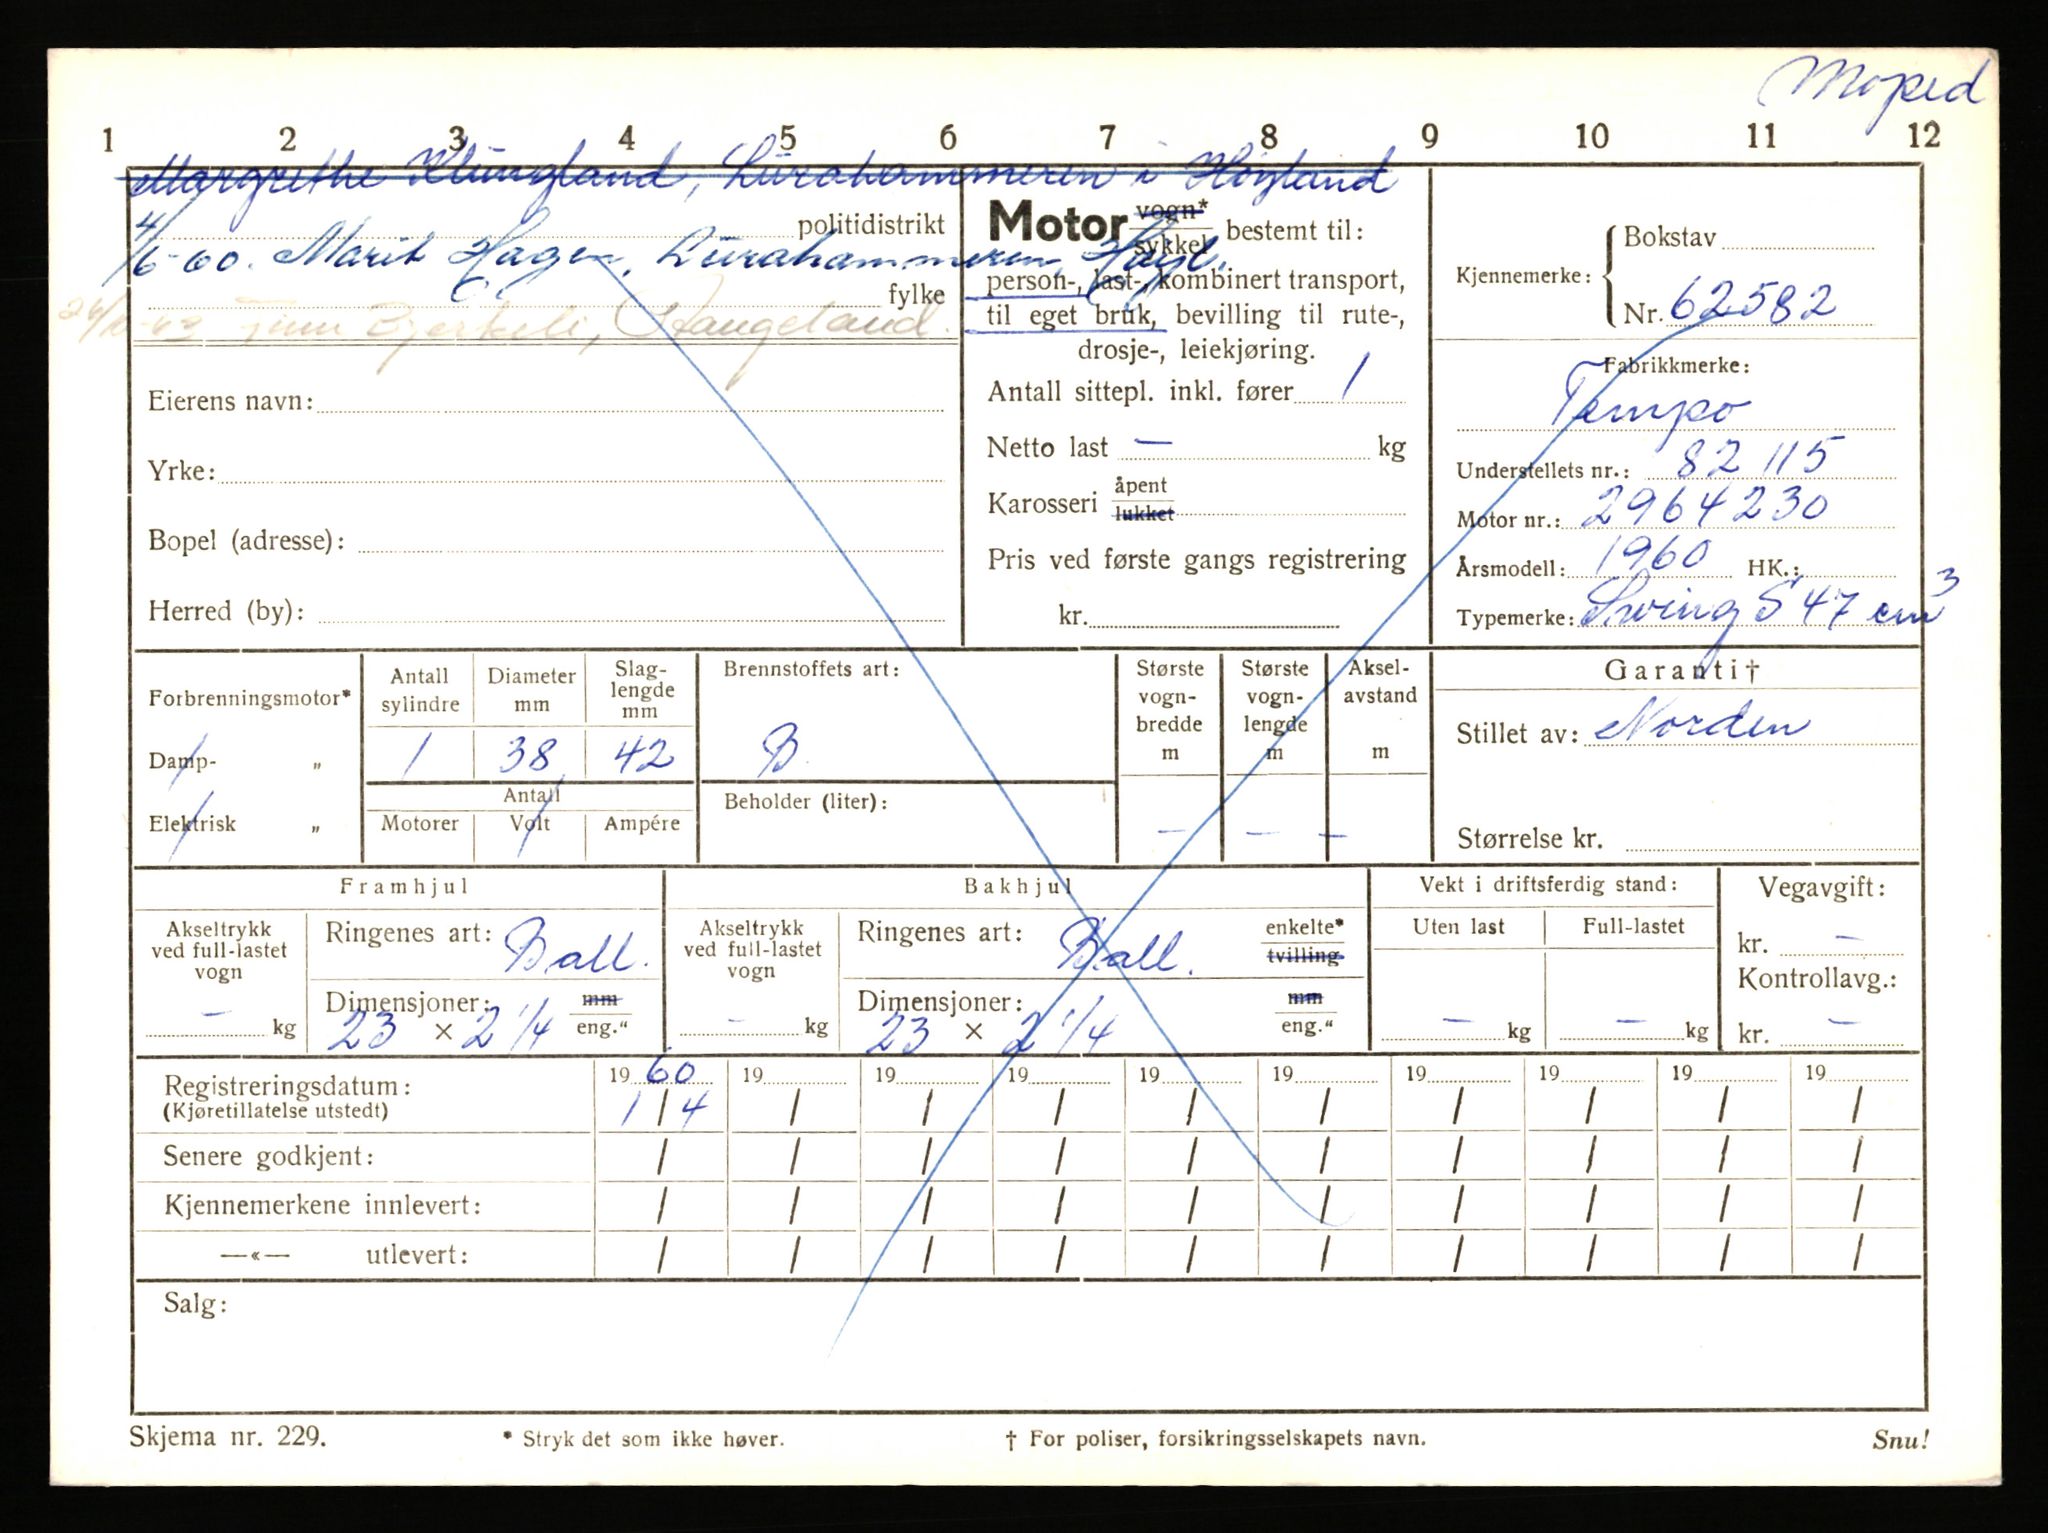 Moped
1 2 3 4 5 6 7 8 9 10 11 12
Margrethe Klungland, Lurahammeren i Høyland
4/6-60. Marit Hagen, Lurahammeren, Høyl.
Bjerkeli, Haugeland.
politidistrikt
fylke
Eierens navn:
Yrke:
Bopel (adresse):
Herred (by):
Motor vogn* sykkel bestemt til:
person-, last-, kombinert transport,
til eget bruk, bevilling til rute-,
drosje-, leiekjøring.
Antall sittepl. inkl. fører 1
Netto last — kg
Karosseri åpent lukket
Pris ved første gangs registrering
kr.
Kjennemerke: Bokstav
Nr. 62582
Fabrikkmerke:
Tempo
Understellets nr.: 82 115
Motor nr.: 2964230
Årsmodell: 1960 HK.:
Typemerke: Swing S 47 cm³
Forbrenningsmotor*
Damp- „
Elektrisk „
Antall sylindre
1
Diameter mm
38
Slag-lengde mm
42
Antall
Motorer Volt Ampére
Brennstoffets art:
B.
Beholder (liter):
Største vogn-bredde m
—
Største vogn-lengde m
—
Aksel-avstand m
—
Garanti†
Stillet av: Norden
Størrelse kr.
Framhjul
Akseltrykk ved full-lastet vogn
— kg
Ringenes art: Ball.
Dimensjoner: mm
23 × 2 1/4 eng."
Bakhjul
Akseltrykk ved full-lastet vogn
— kg
Ringenes art: Ball. enkelte* tvilling
Dimensjoner: mm
23 × 2 1/4 eng."
Vekt i driftsferdig stand:
Uten last Full-lastet
— kg — kg
Vegavgift:
kr. —
Kontrollavg.:
kr. —
Registreringsdatum: 1960 19 19 19 19 19 19 19 19 19
(Kjøretillatelse utstedt) 1/4 / / / / / / / / /
Senere godkjent: / / / / / / / / / /
Kjennemerkene innlevert: / / / / / / / / / /
—«— utlevert: / / / / / / / / / /
Salg:
Skjema nr. 229. * Stryk det som ikke høver. † For poliser, forsikringsselskapets navn. Snu!